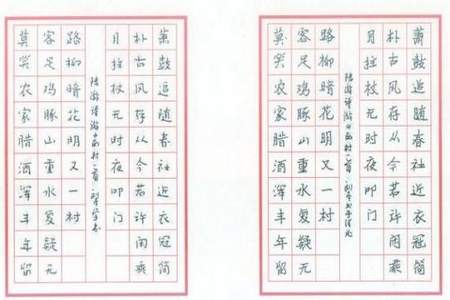 莫笑农家腊酒浑丰年留
客足鸡豚山重水复疑无
路柳暗花明又一村
箫鼓追随春社近衣冠简
朴古风存从今若许闲乘
月拄杖无时夜叩门
陆游诗游山西村一首
莫笑农家腊酒浑丰年留
客足鸡豚山重水复疑无
路柳暗花明又一村
箫鼓追随春社近衣冠简
朴古风存从今若许闲乘
月拄杖无时夜叩门
陆游诗游山西村一首